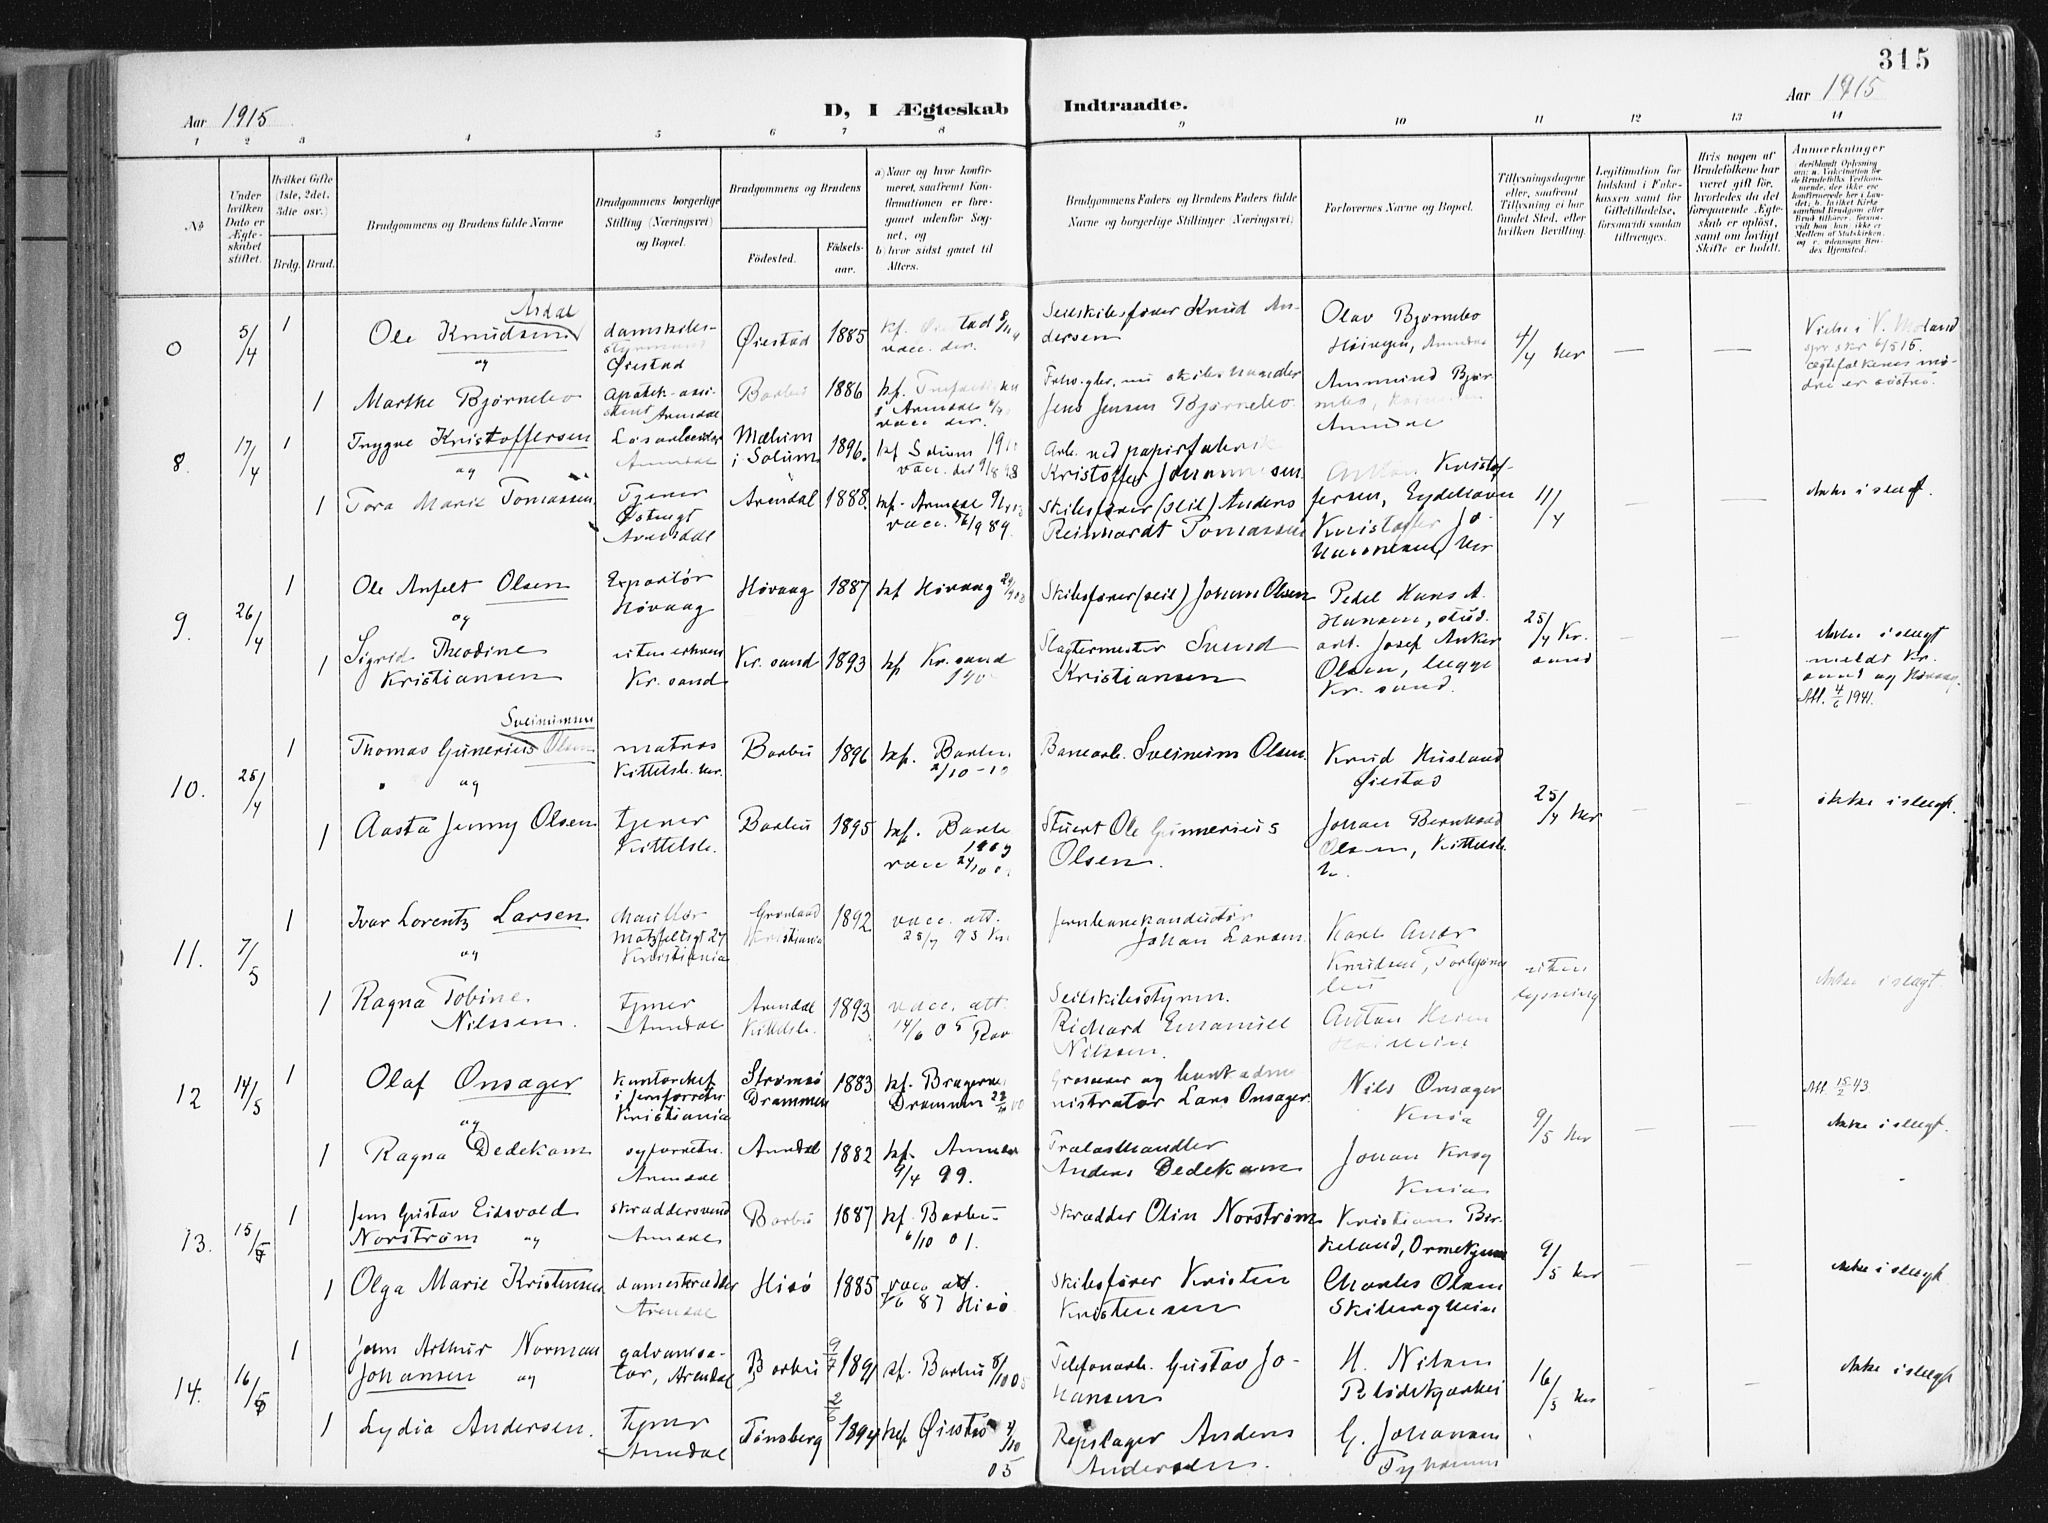 315
Aar 1915
D, I Ægteskab Indtraadte.
Aar 1915
1 2 3 4 5 6 7 8 9 10 11 12 13 14
№
Under hvilken Dato er Ægteskabet stiftet.
Hvilket Gifte (1ste, 2det, 3die osv.)
Brdg. Brud.
Brudgommens og Brudens fulde Navne
Brudgommens borgerlige Stilling (Næringsvei) og Bopæl.
Brudgommens og Brudens
Fødested. Fødselsaar.
a) Naar og hvor konfirmeret, saafremt Konfirmationen er foregaaet udenfor Sognet, og
b) hvor sidst gaaet til Alters.
Brudgommens Faders og Brudens Faders fulde Navne og borgerlige Stillinger (Næringsvei)
Forlovernes Navne og Bopæl.
Tillysningsdagene eller, saafremt Tillysning ei har fundet Sted, efter hvilken Bevilling.
Legitimation for Indskud i Enkekassen samt for Giftetilladelse, forsaavidt saadan tiltrænges.
Hvis nogen af Brudefolkene har været gift før, hvorledes da det foregaaende Ægteskab er opløst, samt om lovligt Skifte er holdt.
Anmærkninger
0 5/4 1
Asdal
Ole Knudsen
og
damskibsstyrmand
Øiestad
Øiestad 1885
kf. Øiestad
vacc. der.
Seilskibsfører Knud Andersen
Olav Bjørnebo
Høivegen, Arendal
4/4 her
Vielse i V. Moland
1 Marthe Bjørnebo
Apothek-assistent Arendal
Barbu 1886
i Arendal
vacc. der.
Jens Jensen Bjørnebo
Ammund Bjørnebo,
Arendal
8. 17/4 1
Trygve Kristoffersen
og
Løsarbeider
Arendal
Mælum i Solum 1896.
kf Solum
Arb. ved papirfabrik
Kristoffer Johannesen
Anton Kristoffersen, Eydehavn
11/4
Ikke i slegt.
1 Tora Marie Tomassen
Tjener
Østregt
Arendal
Arendal 1888.
kf. Arendal
vacc. 16/9 89.
Skibsfører (seil) Anders
Reinhardt Tomassen
Kristoffer Johannesen, her
9. 26/4 1
Ole Anfelt Olsen
og
Exportør
Høvaag
Høvaag 1887
kf Høvaag
Skibsfører (seil) Johan Olsen
Pedel Hans A.
Hansen, stud.
art. Josef Anker
Olsen, begge
Kr. sand.
25/4 Kr. sand
Ikke i slegt
meldt Kr.
sand og Høvaag.
Att. 4/6 1941.
1 Sigrid Theodine
Kristiansen
uten erhverv
Kr. sand
Kr. sand 1893
kf Kr. sand
Slagtermester Svend
Kristiansen
10. 25/4 1
Sveinumsen
Thomas Gunerius Olsen
og
matros
Kittelsb. her.
Barbu 1896
kf. Barbu
2/10 -10
Banearb. Sveinum Olsen.
Knud Husland
Øiestad
25/4 her
ikke i slegt
1 Aasta Jenny Olsen
tjener
Kittelsb.
Barbu 1895
kf. Barbu
1909
vacc
Stuert Ole Gunnerius
Olsen.
Johan Bernhard
Olsen, Kittelsb.
11. 7/5 1
Ivar Lorentz Larsen
og
Kristiania
Grønland
Kristiania
1892
vacc. att.
25/7 93 Kr
Jernbanekonduktør
Johan Larsen.
Karl Andr
Knudsen,
uten lysning
Ikke i slegt.
1 Ragna Tobine
Nilssen.
tjener
Arendal
Arendal
Kittelsb.
1893
vacc. att.
14/6 05
Seilskibsstyrm.
Richard Emanuel
Nilssen.
Anton
12 14/5 1
Olaf Onsager
og
Kontorchef
i jernforretn.
Kristiania
Strømsø
Drammen
1883
kf. Bragernes
Drammen
Grosserer og bankadministrator Lars Onsager.
Nils Onsager
Kr.ia
9/5 her
Att. 15/2 43.
Ikke i slegt.
1 Ragna Dedekam
syforretn.
Arendal
Arendal 1882
kf. Arendal
9/4 99.
Trælasthandler
Anders Dedekam
Johan Krog
Kr.ia
13. 15/5 1
Jens Gustav Eidsvold
Norstrøm og
skræddersvend
Arendal
Barbu 1887
kf. Barbu
6/10 01.
Skrædder Olin Norstrøm
Kristian Birkeland,
9/5 her
Ikke i slegt.
1 Olga Marie Kristensen
dameskrædder
Arendal
Hisø 1885
vacc. att.
87 Hisø
Skibsfører Kristen
Kristensen
Charles Olsen
14. 16/5 1
John Arthur Norman
Johansen og
galvanisatør, Arendal
Barbu 9/7 1891
kf. Barbu 8/10 05
Telefonarb. Gustav Johansen
H. Nilsen
16/5 her
Ikke i slegt
1 Lydia Andersen.
tjener
Arendal
Tønsberg 2/6 1891
kf. Øiestad
05
Repslager Anders
Andersen.
G. Johansen